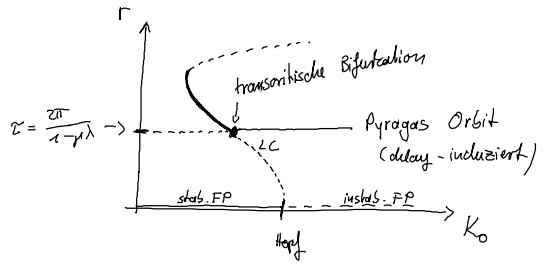 r
transcritische Bifurkation
τ = 2π / 1-μλ ->
Pyragas Orbit
(delay-induziert)
LC
stab. FP
instab. FP
K₀
Hopf